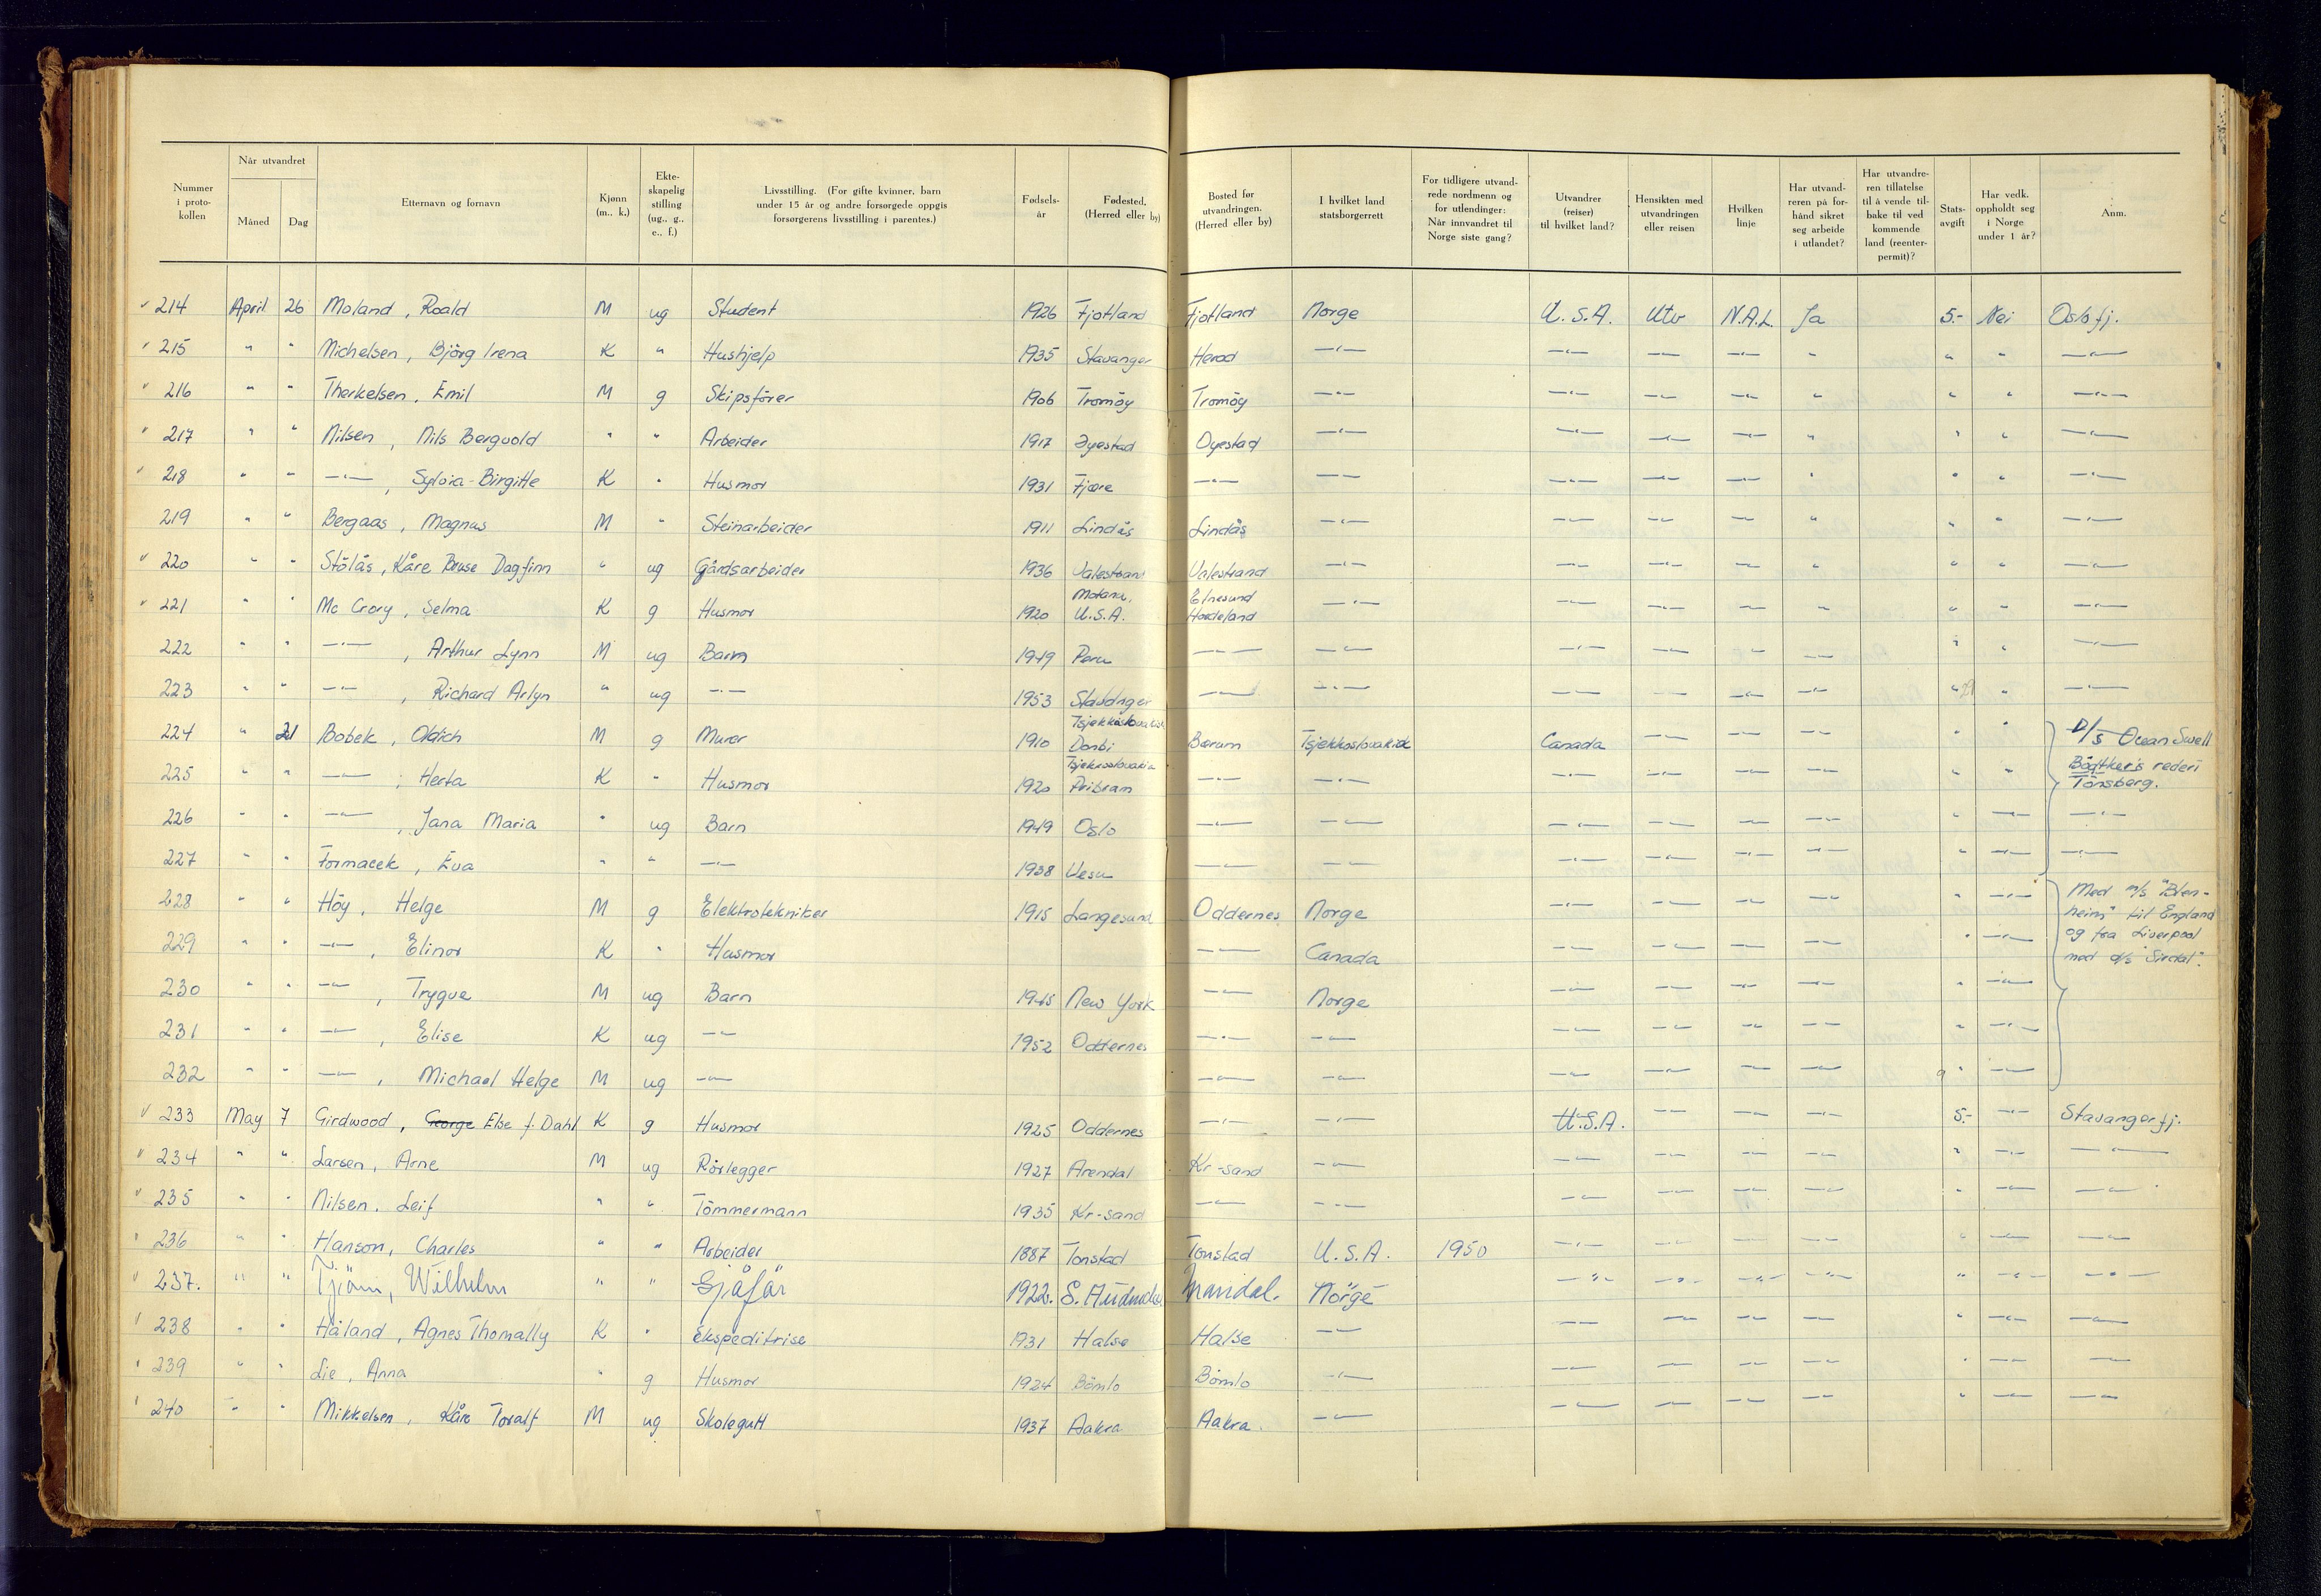 Nummer i protokollen | Når utvandret Måned | Dag | Etternavn og fornavn | Kjønn (m., k.) | Ekteskapelig stilling (ug., g., e., f.) | Livsstilling. (For gifte kvinner, barn under 15 år og andre forsørgede oppgis forsørgerens livsstilling i parentes.) | Fødselsår | Fødested, (Herred eller by) | Bosted før utvandringen. (Herred eller by) | I hvilket land statsborgerrett | For tidligere utvandrede nordmenn og for utlendinger: Når innvandret til Norge siste gang? | Utvandrer (reiser) til hvilket land? | Hensikten med utvandringen eller reisen | Hvilken linje | Har utvandreren på forhånd sikret seg arbeide i utlandet? | Har utvandreren tillatelse til å vende tilbake til vedkommende land (reenterpermit)? | Statsavgift | Har vedk. oppholdt seg i Norge under 1 år? | Anm.
214 April 26 Moland, Roald M ug Student 1926 Fjotland Fjotland Norge U.S.A. Utv N.A.L. Ja 5.- Nei Oslofj.
215 " " Michelsen, Björg Irena K " Hushjelp 1935 Stavanger Herad —"— —"— —"— —"— " " " —"—
216 " " Therkelsen, Emil M g Skipsförer 1906 Tromöy Tromöy —"— —"— —"— —"— " " " —"—
217 " " Nilsen, Nils Bergvold " " Arbeider 1917 Øyestad Oyestad —"— —"— —"— —"— " " " —"—
218 " " —"—, Sylvia-Birgitte K " Husmor 1931 Fjære —"— —"— —"— —"— —"— " " " —"—
219 " " Bergaas, Magnus M " Steinarbeider 1911 Lindås Lindås —"— —"— —"— —"— " " " —"—
220 " " Stölås, Kåre Bruse Dagfinn " ug Gårdsarbeider 1936 Valestrand Valestrand —"— —"— —"— —"— " " " —"—
221 " " Mc Crory, Selma K g Husmor 1920 U.S.A. Elnesund Hordeland —"— —"— —"— —"— " " " —"—
222 " " —"—, Arthur Lynn M ug Barn 1949 Peru —"— —"— —"— —"— —"— —"— " " —"—
223 " " —"—, Richard Arlyn " ug —"— 1953 Stavanger —"— —"— —"— —"— —"— —"— " " —"—
224 " 21 Bobek, Oldich M g Murer 1910 Tsjekkoslovakia Donbi Bærum Tsjekkoslovakia Canada —"— —"— —"— " " D/S Ocean Swell
225 " " —"—, Herta K " Husmor 1920 Tsjekkoslovakia Pribram —"— —"— —"— —"— —"— —"— " " Bögtker's rederi Tönsberg.
226 " " —"—, Jana Maria " ug Barn 1949 Oslo —"— —"— —"— —"— —"— —"— " —"— —"—
227 " " Formacek, Eva " " —"— 1938 Vesu —"— —"— —"— —"— —"— —"— " —"— —"—
228 " " Höy, Helge M g Elektrotekniker 1915 Langesund Oddernes Norge —"— —"— —"— —"— " —"— Med m/s "Blenheim" til England
229 " " —"—, Elinor K " Husmor —"— Canada —"— —"— —"— —"— " —"— og fra Liverpool med d/s "Sirdal".
230 " " —"—, Trygve M ug Barn 1945 New York —"— Norge —"— —"— —"— —"— " —"—
231 " " —"—, Elise K ug —"— 1952 Oddernes —"— —"— —"— —"— —"— —"— " —"—
232 " " —"—, Michael Helge M ug —"— —"— —"— —"— —"— —"— —"— " —"—
233 May 7 Girdwood, George Else f. Dahl K g Husmor 1925 Oddernes —"— —"— U.S.A. —"— —"— —"— 5.- —"— Stavangerfj.
234 " " Larsen, Arne M ug Rörlegger 1927 Arendal Kr-sand —"— —"— —"— —"— —"— " —"— —"—
235 " " Nilsen, Leif " " Tömmermann 1935 Kr-sand —"— —"— —"— —"— —"— —"— " —"— —"—
236 " " Hanson, Charles " " Arbeider 1887 Tonstad Tonstad U.S.A. 1950 —"— —"— —"— —"— " —"— —"—
237. " " Tjöm, Wilhelm " " Sjåfør 1922. S. Audnedal Mandal. Norge —"— —"— —"— —"— " —"— —"—
238 " " Håland, Agnes Thomally K " Ekspeditrise 1931 Halse Halse —"— —"— —"— —"— —"— " —"— —"—
239 " " Lie, Anna " g Husmor 1924 Bömlo Bömlo —"— —"— —"— —"— —"— " —"— —"—
240 " " Mikkelsen, Kåre Toralf M ug Skolegutt 1937 Aakra Aakra. —"— —"— —"— —"— —"— " —"— —"—